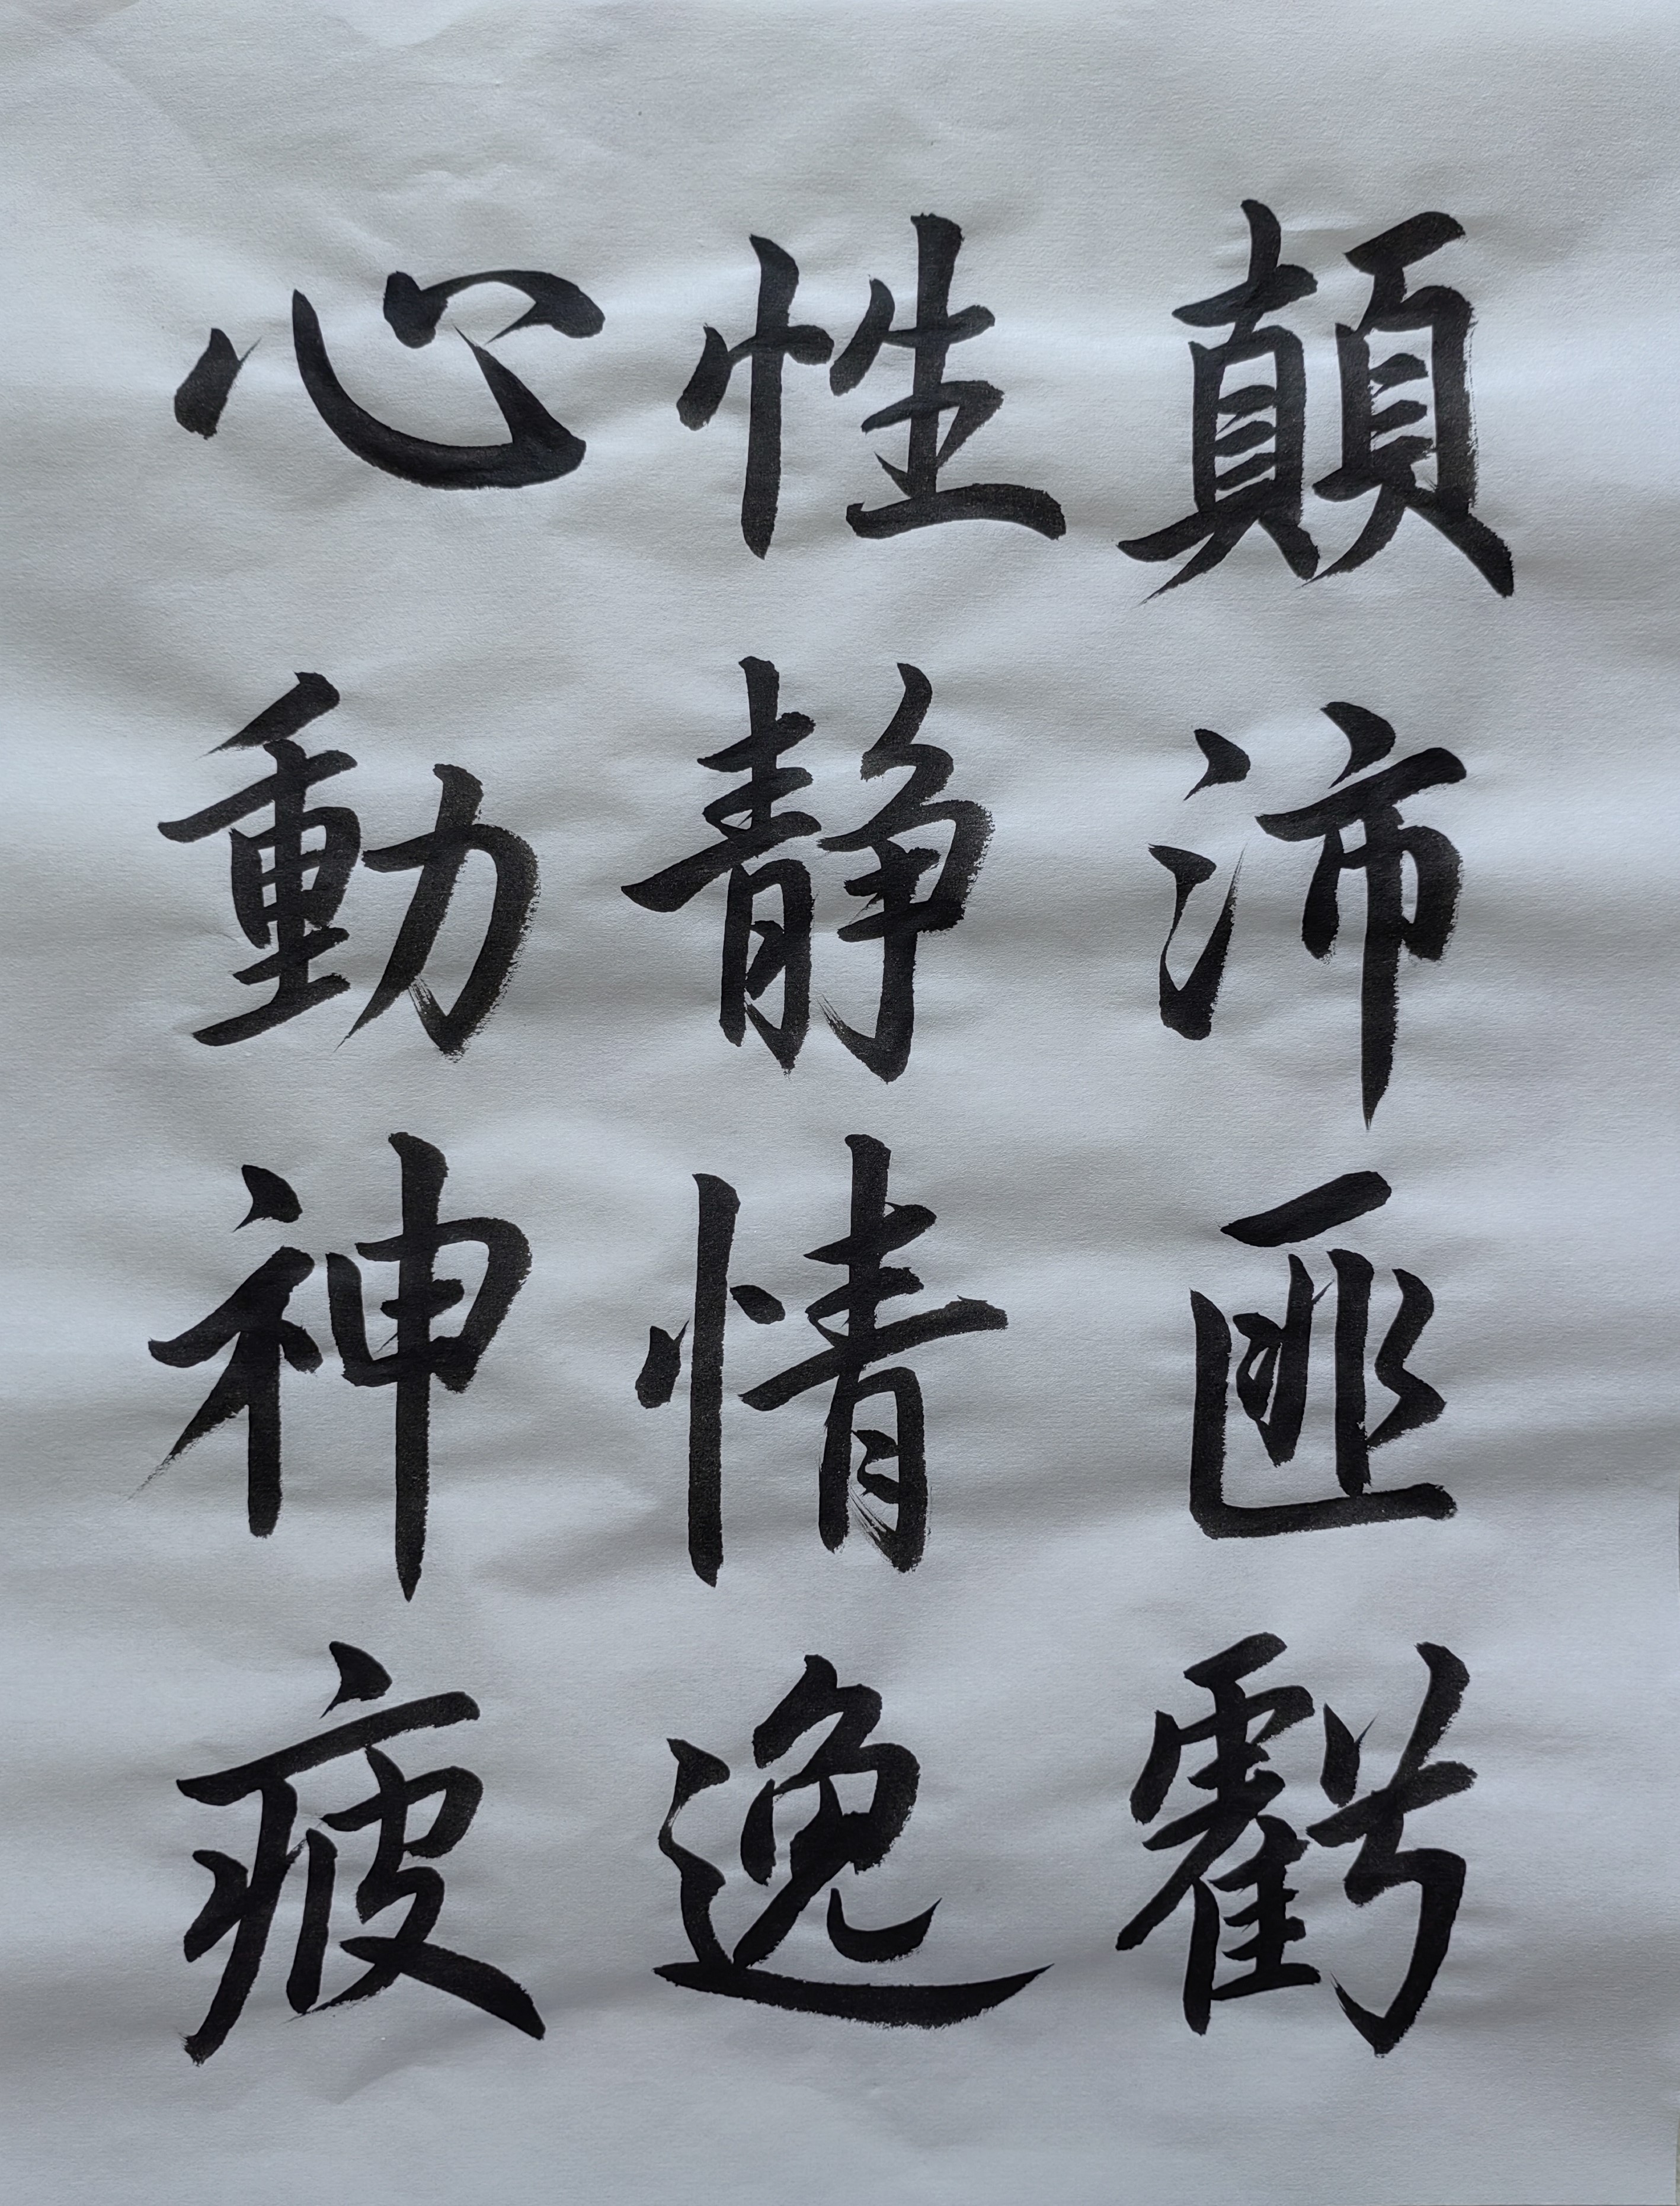 顛沛匪虧
性静情逸
心動神疲